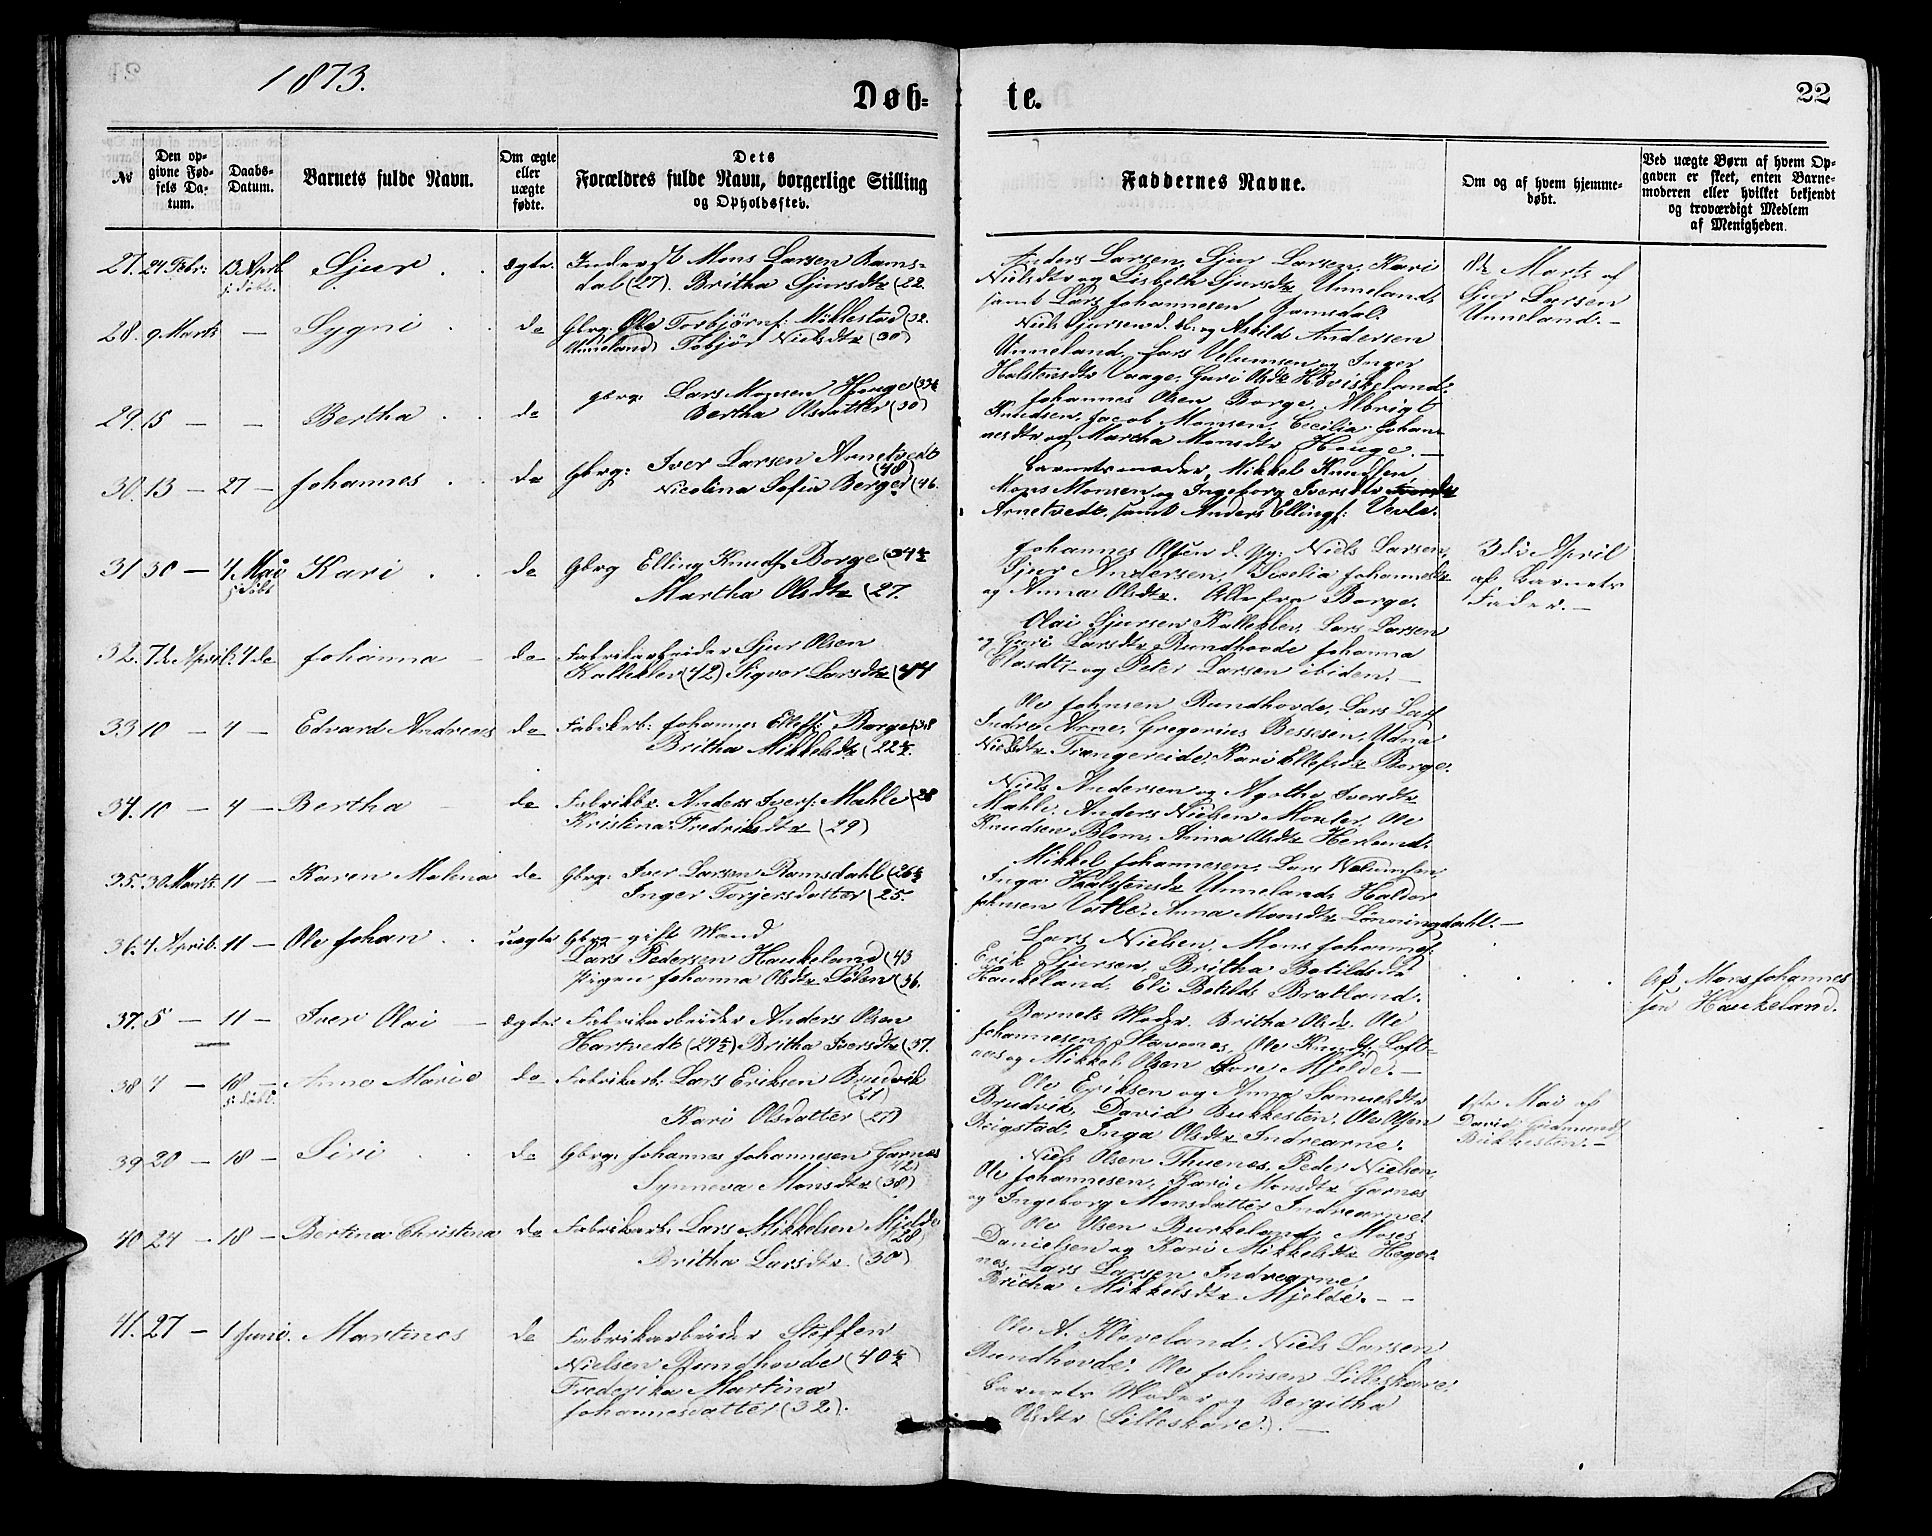 1873.
Døb=
te.
22
No
Den op-
givne Fød-
sels Da-
tum.
Daabs-
Datum.
Barnets fulde Navn.
Om ægte
eller
uægte
fødte.
Dets
Forældres fulde Navn, borgerlige Stilling
og Opholdssted.
Faddernes Navne.
Om og af hvem hjemme-
døbt.
Ved uægte Børn af hvem Op-
gaven er skeet, enten Barne-
moderen eller hvilket bekjendt
og troværdigt Medlem
af Menigheden.
27. 24 Febr: 13 April Sjur ægte. Inderst Mons Larsen Rams=
dal (27). Britha Sjursdtr (22.
Anders Larsen, Sjur Larsen, Kari
Nielsdtr og Lisbeth Sjursdtr Unneland,
samt Lars Johannesen Ramsdal.
8de Marts af
Sjur Larsen
Unneland.—
28. 9 Marts — Sygni de Gbrg: Ole Torbjørns: Mjklestad (32.
Unneland) Tobjør Nielsdtr (30)
Niels Sjursen og Askild Andersen
Unneland, Lars Velumsen og Inger
Halstensdtr Vaage, Guri Olsdtr Hviskeland.
29. 15 — — Bertha de gbrg: Lars Monsen Houge (33½
Bertha Olsdatter (30)
Johannes Olsen Borge, Albrigt
Knudsen, Jacob Monsen, Cecilia Johan
nesdtr og Martha Monsdtr Houge.—
30. 13 — 27 — Johannes de Gbrg: Iver Larsen Arnetvedt
(48)
Nicolina Sofia Berger (46.
Barnets moder, Mikkel Knudsen,
Mons Monsen og Ingeborg Iversdtr
Arnetvedt, samt Anders Ellings: Vevle.
31 30 — 4 Mai Kari de Gbrg Elling Knuds Borge (34½
Martha Olsdtr (27.
Johannes Olsen d. yg: Niels Larsen,
Sjur Andersen, Johannesdtr
og Anna Olsdtr. Alle fra Borge.
3die April
af Barnets
Fader.—
32. 7de April. 4 de Johanna — de Fabrikarbeider Sjur Olsen
Kalleklev (42) Sigvor Larsdtr (44
Olai Sjursen Kalleklev, Lars Larsen
og Guri Larsdtr Rundhovde, Johanna
Olasdtr og Peter Larsen ibiden.—
33 10 — 4 — Edvard Andreas de Fabrikarb: Johannes Ellefs: Borge (28
Britha Mikkelsdtr (22½.
Ole Johnsen Rundhovde, Lars Lars
Indre Arne, Gregorius Bessesen, Udna
Nielsdtr Trengereide, Kari Ellefsdtr Borge.
34. 10 — 4 — Bertha de Fabrikbr. Anders Ivers: Mahle (28
Kristina Fredriksdtr (29)
Niels Andersen og Agatha Iversdtr
Mahle, Anders Nielsen Monter, Ole
Knudsen Blom, Anna Olsdtr Herland.
35. 30 Marts 11 — Karen Malena de Gbrg: Iver Larsen Ramsdahl (26½
Inger Torjersdatter (25.
Mikkel Johannesen, Lars Velumsen,
Inga Haalstensdtr Unneland, Haldor
Johnsen Votle, Anna Monsdtr Lønningdahl.—
36. 4 April 11 — Ole Johan uægte Gbrg gift Mand
Lars Pedersen Haukeland (43
Pigen Johanna Olsdtr (36.
Lars Nielsen, Mons Johannes:
Erik Sjursen, Britha Botildsdtr
Haukeland, Eli Botilds Bratland.
Af Mons Johannes
sen Haukeland.
37. 5 — 11 — Iver Olai — ægte: Fabrikarbeider Anders Olsen
Hartvedt (29½) Britha Iversdtr (37.
Barnets Moder, Britha Olsdr. Ole
Johannesen Stavenes, Ole Knuds. Loft-
aas og Mikkel Olsen Gore Mjelde.—
38 4 — 18 — Anna Marie de Fabrikarb. Lars Eriksen Brudvik
(21)
Kari Olsdatter (27)
Ole Eriksen og Anna Samuelsdtr
Brudvik, David Bukkesten, Ole Olsen
Reigstad, Inga Olsdtr Indrearne.
1ste Mai af
David
Bukkesten.—
39 20 — 18 — Siri de Gbrg: Johannes Johannesen Garnes
(42)
Synneva Monsdtr (38)
Niels Olsen Thuenes, Peder Nielsen,
Ole Johannesen, Kari Monsdtr Garnes
og Ingeborg Monsdatter Indrearne.
40 24 — 18 — Bertina Christina de Fabrikarb. Lars Mikkelsen Mjelde
(28)
Britha Larsdtr. (30)
Ole Olsen Burkeland, Moses
Danielsen og Kari Mikkelsdtr Heger=
nes, Lars Larsen Indrearne,
Britha Mikkelsdtr Mjelde. — —
41. 27 — 1 Juni. Martines de Fabrikarbeider Steffen
Nielsen Rundhovde (40½)
Frederika Martina
Johannesdatter (32).
Ole A. Kleveland, Niels Larsen
Rundhovde, Ole Johnsen Lilleskare,
Barnets Moder og Bergitha
Olsdtr (Lilleskare).—